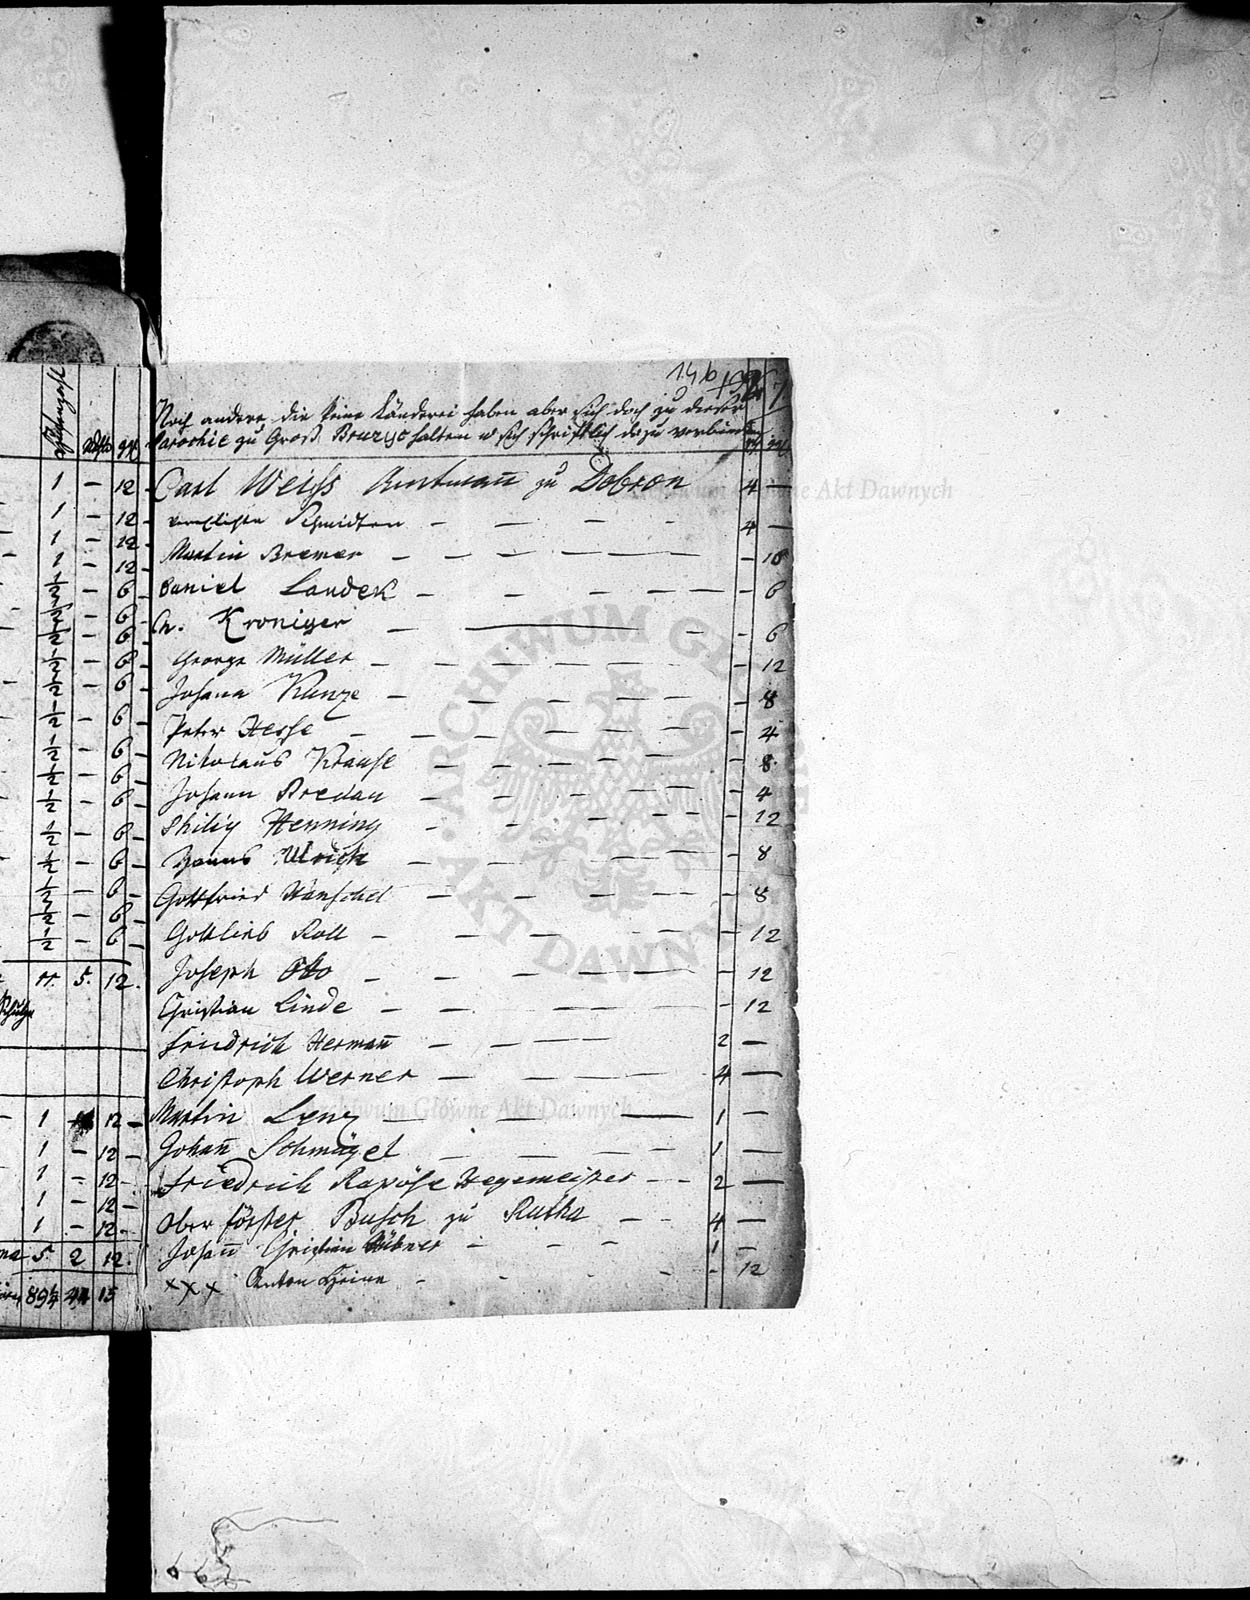 146
Noch andere die keine Länderei haben aber sich doch zu dieser
Parochie zu Groß Bruzyc halten u sich schriftlich dazu verbinden
Carl Weiss Amtmañ zu Dobron 4 —
Schmidten — — — — 4 —
Martin Bremer — — — — — — 18
Daniel Landek — — — — — — 6
Kroniger — — — — 6
George Müller — — — — — — — 12
Johann Kunze — — — — — — 8
Peter Hesse — — — — — — 4
Nikolaus Krause — — — — — — 8
Johann Bredau — — — — — — 4
Philip Henning — — — — — — 12
Hanns Ulrich — — — — — — 8
Gottfried Hanschel — — — — — — 8
Gottlieb Roll — — — — — — 12
Joseph Otto — — — — — — 12
Christian Linde — — — — — — 12
Friedrich Hermañ — — — — 2 —
Christoph Werner — — — — 4 —
Martin Lenz — — — 1 —
Johañ Schmägel — — — — 1 —
Friedrich Rapöhe Hegemeister — — 2 —
Ober förster Busch zu Rutha — — 4 —
Johañ Christian Hübner — — — 1 —
xxx Anton Heine — — — — — 12
1 — 12
1 — 12
1 — 12
1 — 12
½ — 6
½ — 6
½ — 6
½ — 6
½ — 6
½ — 6
½ — 6
½ — 6
½ — 6
½ — 6
½ — 6
½ — 6
½ — 6
½ — 6
11. 5. 12.
1 12
1 — 12
1 — 12
1 — 12
1 — 12
5 2 12.
15
ARCHIWUM GŁÓWNE AKT DAWNYCH
Archiwum Główne Akt Dawnych
Archiwum Główne Akt Dawnych